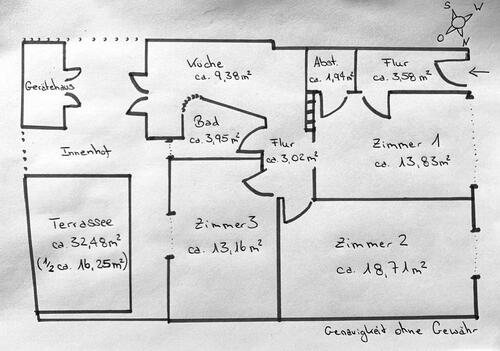 S
W
O
N
Küche
ca. 9,38m²
Abst.
ca. 1,94m²
Flur
ca. 3,58m²
Gerätehaus
Bad
ca. 3,95m²
Flur
ca. 3,02m²
Zimmer 1
ca. 13,83m²
Innenhof
Terrassee
ca. 32,48m²
(1/2 ca. 16,25m²)
Zimmer 3
ca. 13,16m²
Zimmer 2
ca. 18,71m²
Genauigkeit ohne Gewähr